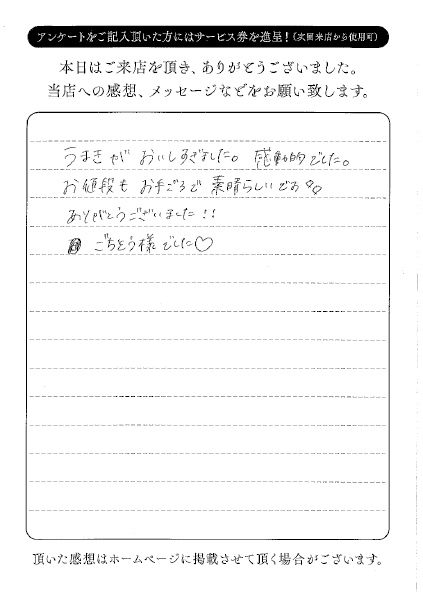 アンケートをご記入頂いた方にはサービス券を進呈！(次回来店から使用可)
本日はご来店を頂き、ありがとうございました。
当店への感想、メッセージなどをお願い致します。
うまきが おいしすぎました。 感動的でした。
お値段も お手ごろで 素晴らしいです
ありがとうございました!!
ごちそう様でした♡
頂いた感想はホームページに掲載させて頂く場合がございます。